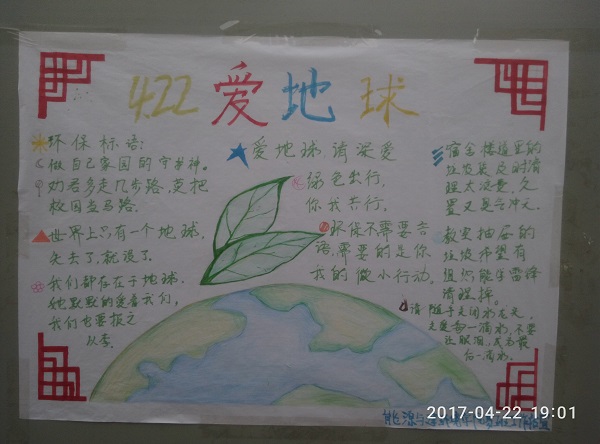 4.22 爱地球
环保标语:
做自己家园的守护神。
劝君多走几步路,莫把
校园当马路.
世界上只有一个地球,
失去了,就没了.
我们都存在于地球.
她默默的爱着我们,
我们也要报之
以李.
爱地球,请深爱
绿色出行,
你我共行,
环保不需要言
语,需要的是你
我的微小行动,
宿舍楼道里的
垃圾袋及时清
理太浪费,久
置又是占冲元.
教室抽屉的
垃圾希望有
组织能学雷锋
清理掉.
请随手关闭水龙头,
后一滴水.
2017-04-22 19:01